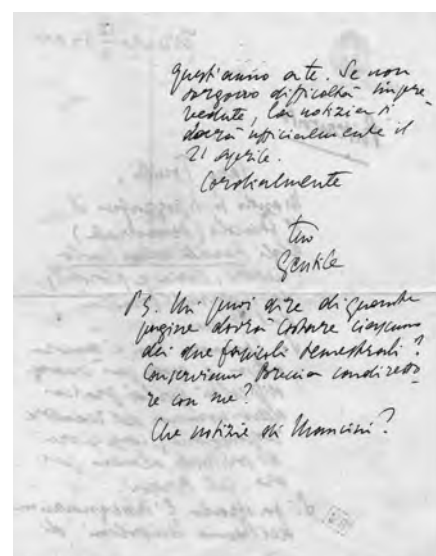 quest'anno a te. Se non
sorgono difficoltà impre
vedute, la notizia si
darà ufficialmente il
21 aprile.
Cordialmente
tuo
Gentile
PS. Mi puoi dire di quante
pagine dovrà constare ciascuno
dei due fascicoli semestrali?
Conserviamo Breccia condiretto
re con me?
Che notizie di Mancini?